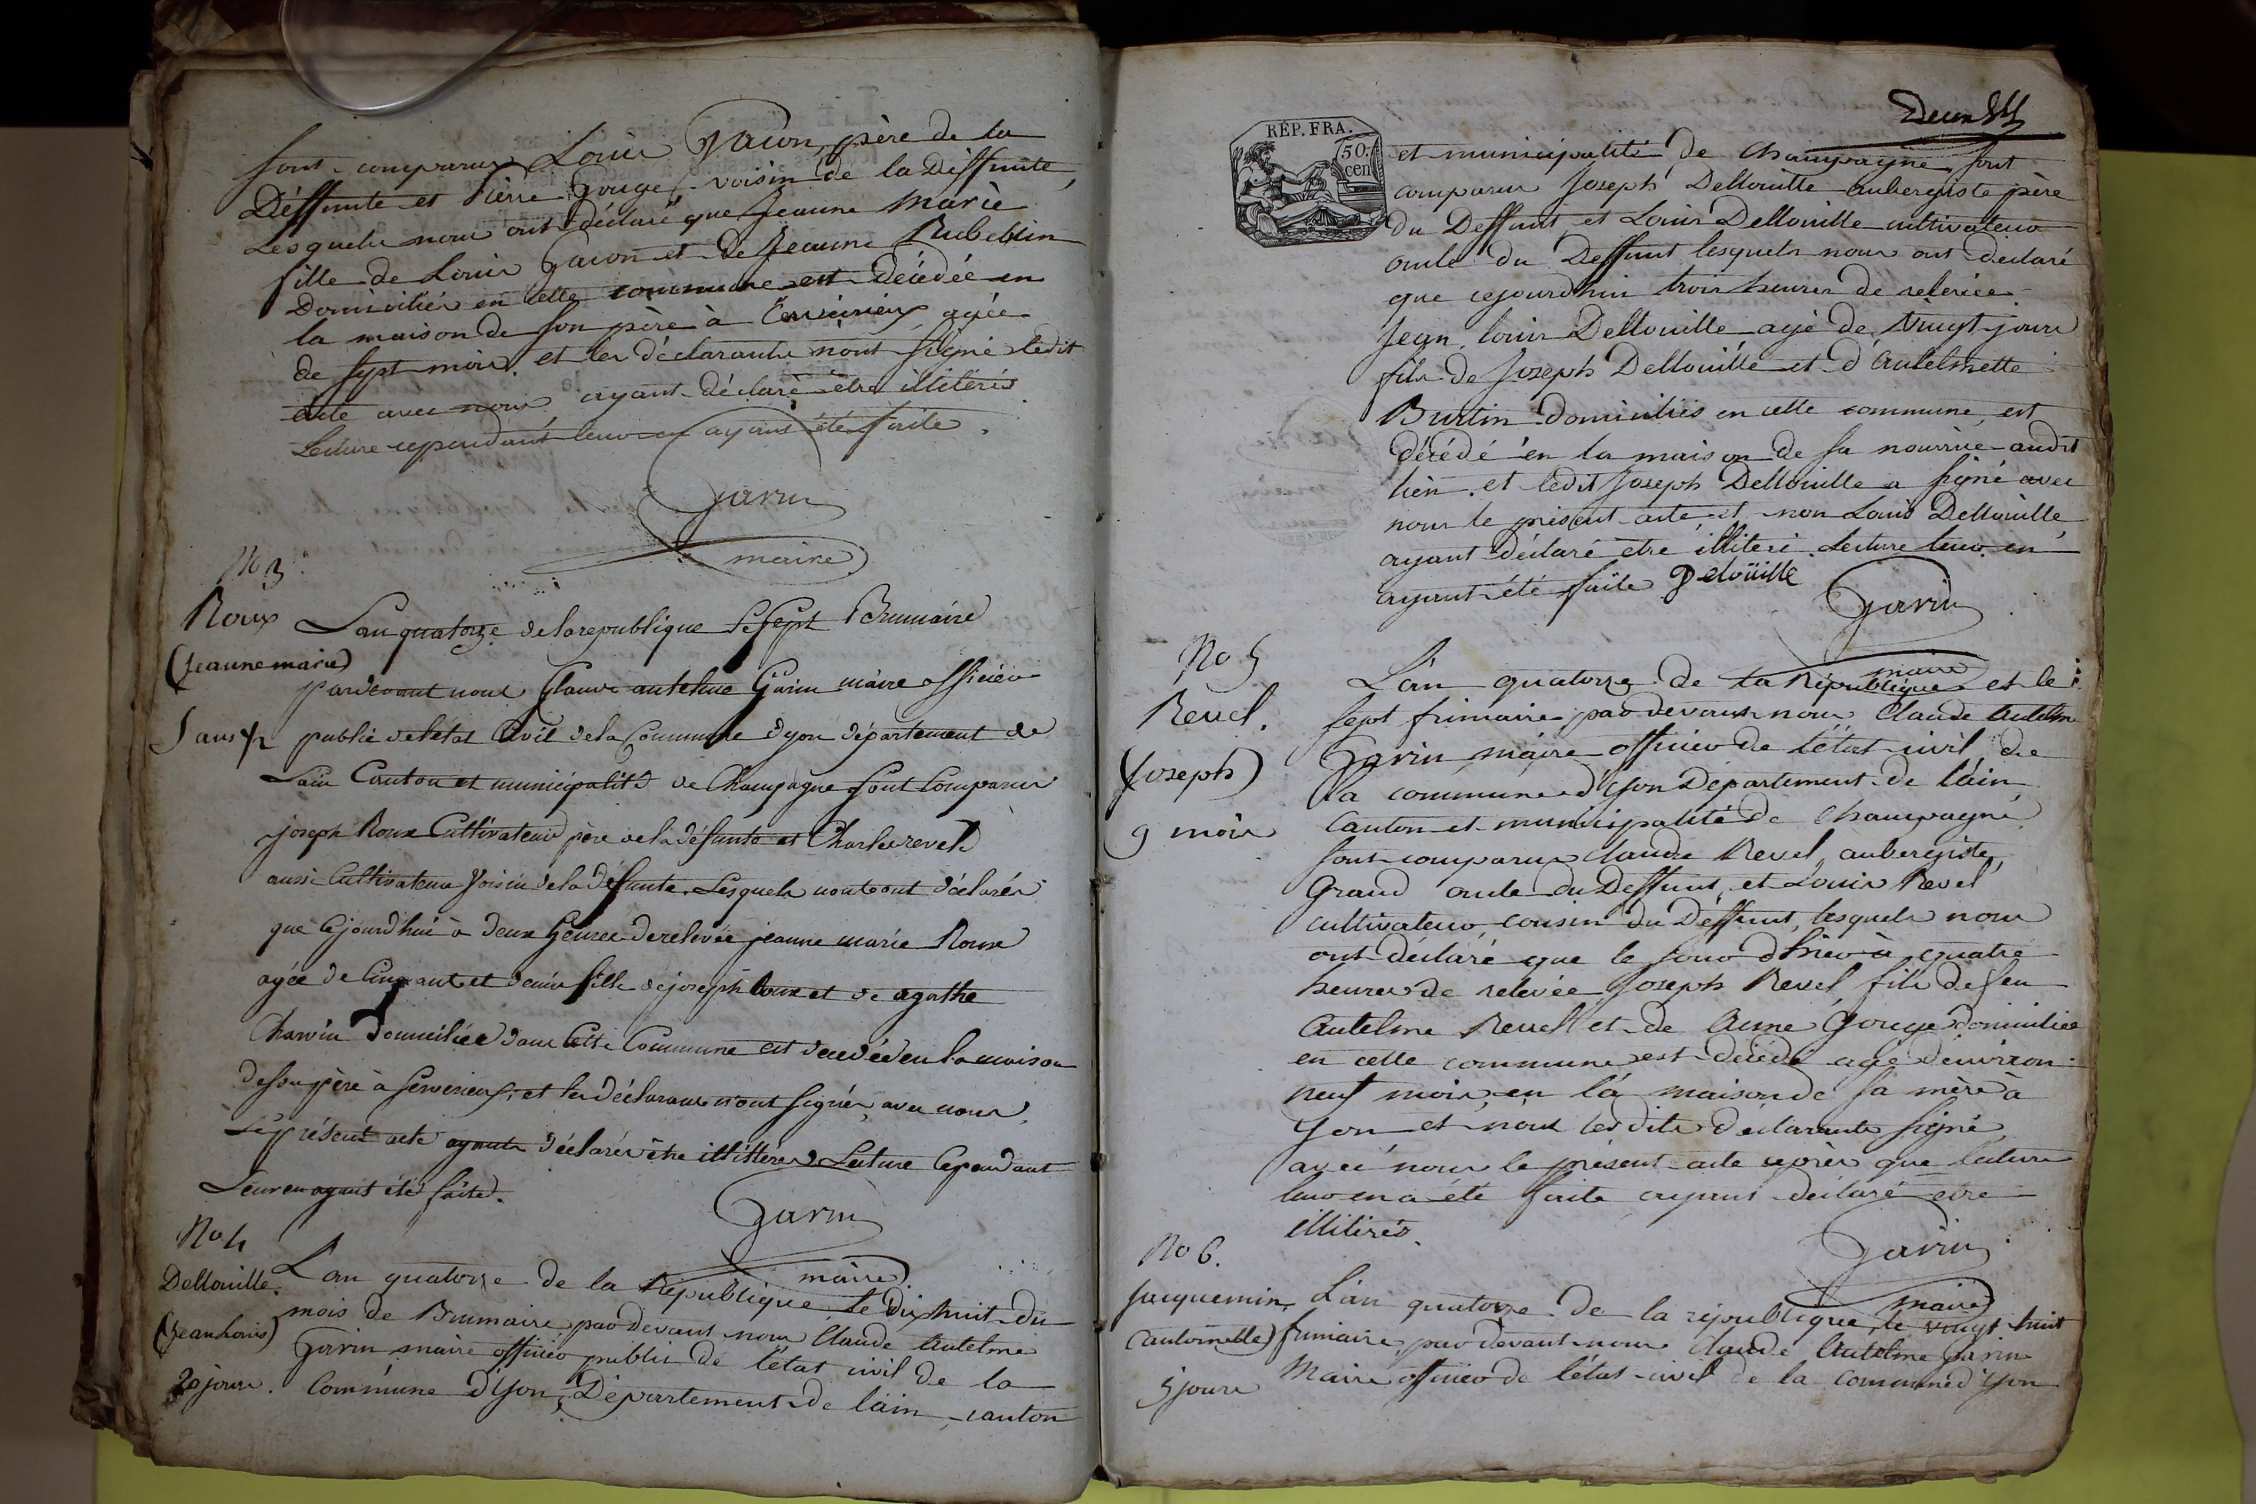 sont comparus Louis Jacon, père de la
Deffunte et Pierre Gouge, voisin de la Deffunte,
Lesquels nous ont déclaré que Jeanne Marie
fille de Louis Jacon et de Jeanne Rubellin
Domiciliés en cette commune est décédée en
la maison de son père à agée
de sept mois, et les déclarants n'ont signé ledit
acte avec nous ayant déclaré être illitérés
Lecture cependant leur en ayant été faite.
Garin
maire
No 3.
Roux
(Jeanne marie)
5 ans 1/2
L'an quatorze de la republique le sept Brumaire
pardevant nous Claude anthelme Garin maire officier
public de letat Civil de la Commune dyon département de
Lain Canton et municipalité de Champagne sont Comparus
joseph Roux Cultivateur père de la défunte et Charles revel
aussi Cultivateur Voisin de la défunte. Lesquels nous ont déclarés
que Cejourd'hui à deux heures de relevée jeanne marie Roux
agée de Cinq ans et demie fille de joseph Roux et de agathe
Charvin Domiciliée dans Cette Commune est décédée en la maison
de son père à et les déclarans n'ont signés avec nous
Le présent acte ayants déclarés être illitterés Lecture Cependant
Leur en ayant été faite.
Garin
maire
No 4
Dellouille.
(Jean Louis)
20 jours.
L'an quatorze de la République le dix huit du
mois de Brumaire par devant nous Claude Autelme
Garin maire officier public de l'état civil de la
Commune d'Yon, Département de l'ain, canton
REP. FRA.
50.
cen
et municipalité de Champagne sont
comparus Joseph Dellouille aubergiste père
du Deffunt, et Louis Dellouille cultivateur
oncle du Deffunt lesquels nous ont déclaré
que cejourdhui trois heures de relevée
Jean Louis Dellouille agé de Vingt jours
fils de Joseph Dellouille et d'Autelmette
Burtin domiciliés en cette commune, est
décédé en la maison de sa nourrice audit
lieu. et ledit Joseph Dellouille a signé avec
nous le présent acte, et non Louis Dellouille,
ayant déclaré être illiteré. Lecture leur en
ayant été faite. Delouille
Garin
maire
No 5
Revel.
(Joseph)
9 mois
L'an quatorze de la République et le
sept frimaire par devant nous Claude Autelm
Garin maire officier de l'état civil de
la commune d'Yon Département de l'ain,
Canton et municipalité de Champagne
sont comparus Claude Revel aubergiste,
Grand oncle du Deffunt, et Louis Revel
cultivateur, cousin du Deffunt, lesquels nous
ont déclaré que le jour d'hier à quatre
heures de relevée Joseph Revel fils de feu
Autelme Revel et de Anne Gouge domiciliée
en cette commune est décédé agé d'environ
neuf mois, en la maison de sa mère à
Yon et n'ont lesdits déclarants signé
avec nous le présent acte après que lecture
leur en a été faite ayant déclaré être
illitérés.
Garin
maire
No 6.
Jacquemin
(antoinette)
5 jours
L'an quatorze de la république, le vingt huit
frimaire, par devant nous Claude Autelme Garin
Maire officier de l'état civil de la commune d'Yon